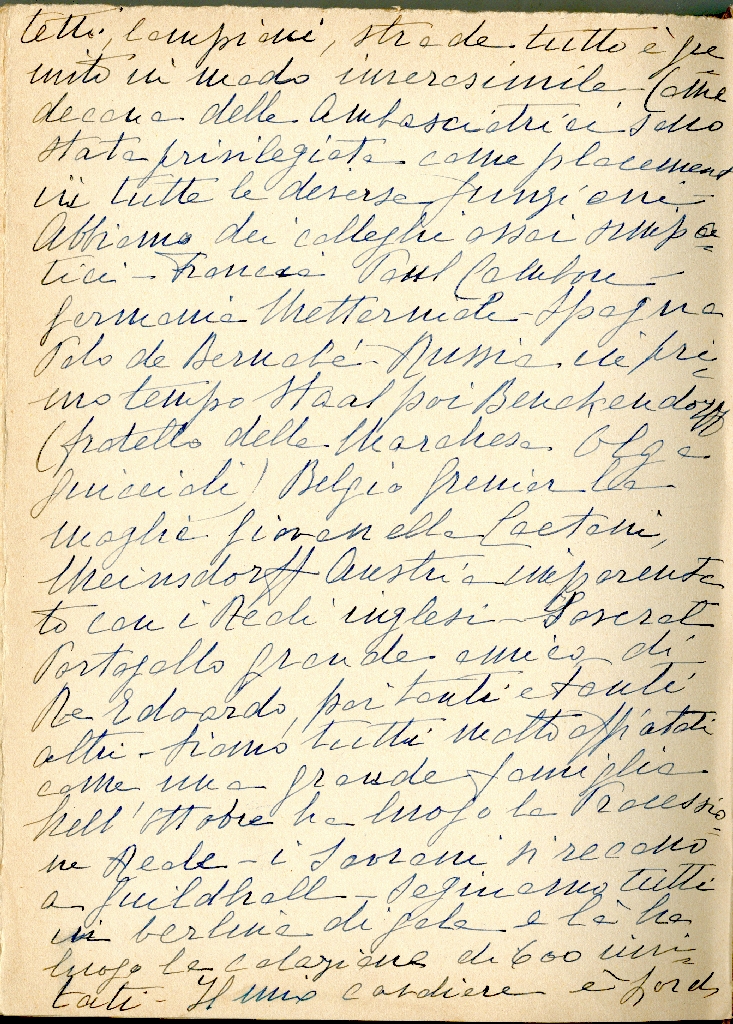 tetti, lampioni, strade tutto è gre-
mito in modo inverosimile (Come
decana delle Ambasciatrici sono
stata privilegiata come placement
in tutte le diverse funzioni -
Abbiamo dei colleghi assai simpa-
tici - Francia Paul Cambon -
Germania Metternich - Spagna
Polo de Bernabé - Russia in pri-
mo tempo Staal poi Benckendorff
(fratello della Marchesa Olga
Guiccioli) Belgio Grenier la
moglie Giovanella Caetani,
Mensdorff Austria imparenta-
to con i Reali inglesi - Soveral
Portogallo grande amico di
Re Edoardo, poi tanti e tanti
altri - Siamo tutti molto affiatati
come una grande famiglia
Nell'ottobre ha luogo la Processio-
ne Reale - i Sovrani si recano
a Guildhall - Seguiamo tutti
in berlina di gala e là ha
luogo la colazione di 600 invi-
tati - Il mio cavaliere è Lord